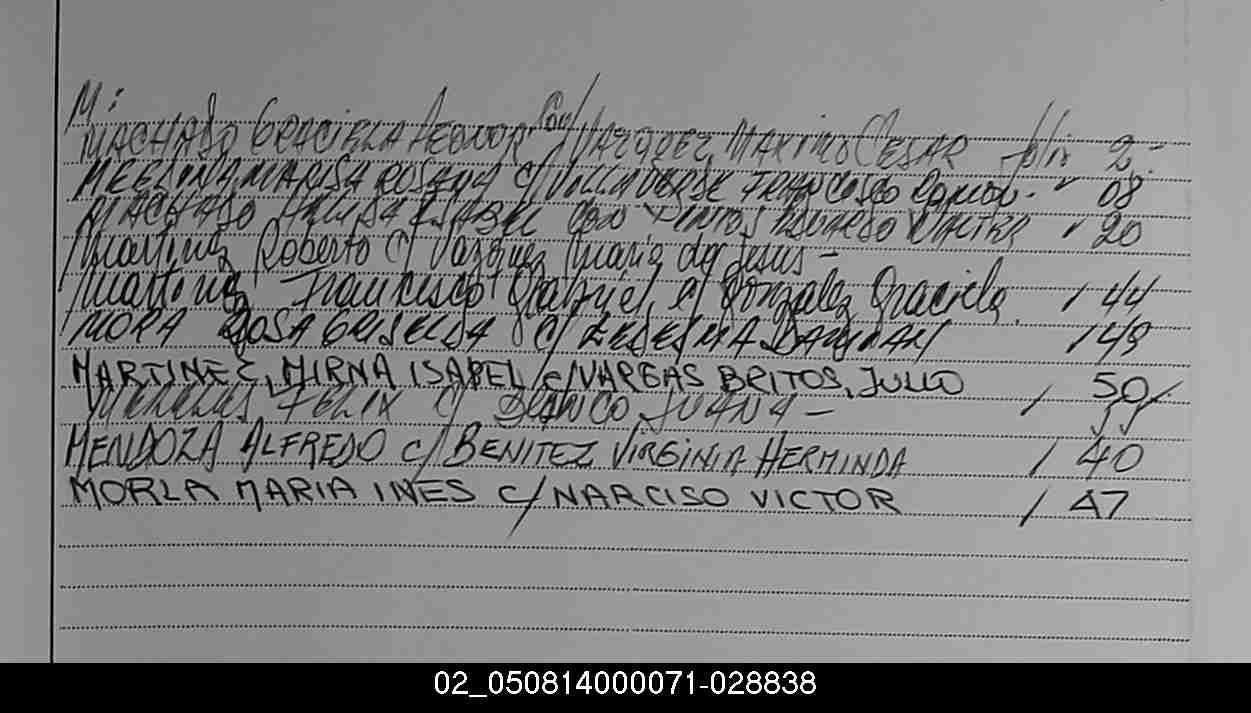 M:
MACHADO GRACIELA LEONOR con VAZQUEZ, MAXIMO CESAR folio 2-
MARISA ROSANA c/ VILLAVERDE FRANCISCO RAMON. " 08
MACHADO ISABEL CON PINTOS WALTER " 20
Martinez Roberto c/ Vazquez Maria de Jesus -
Martinez Francisco Gabriel c/ Gonzalez Graciela / 44
MORA ROSA GRISELDA c/ LEDESMA DAMIAN / 49
MARTINEZ, MIRNA ISABEL c/ VARGAS BRITOS, JULIO / 50
FELIX c/ BLANCO JUANA -
MENDOZA ALFREDO c/ BENITEZ VIRGINIA HERMINDA / 40
MORLA MARIA INES c/ NARCISO VICTOR / 47
02_050814000071-028838